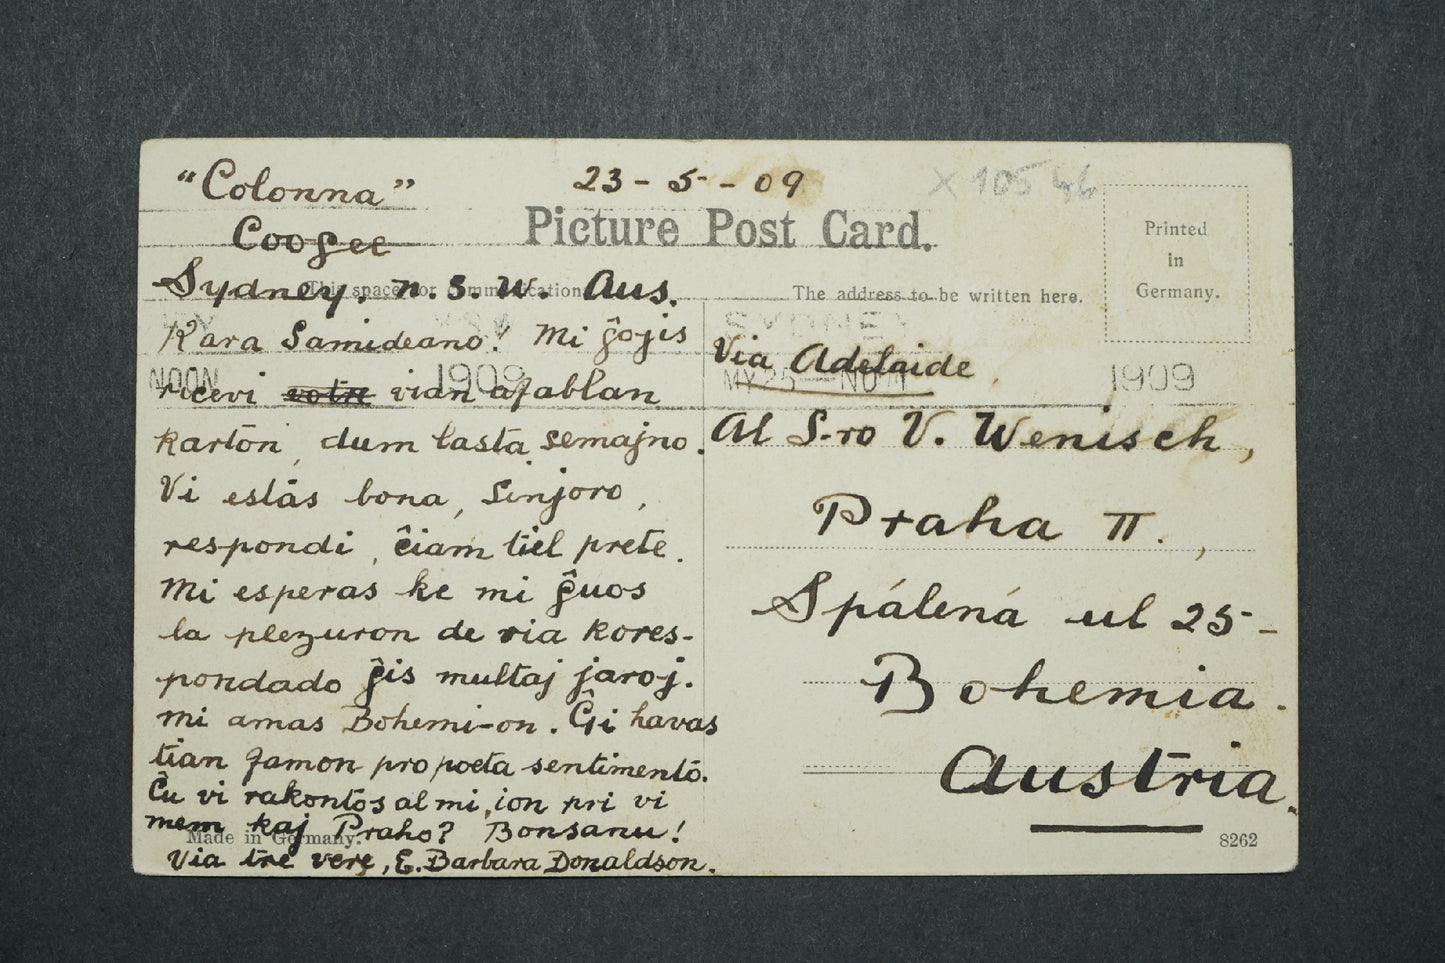 "Colonna"
23-5-09
X 10546
Coogee
Picture Post Card.
Printed
in
Germany.
Sydney. N.S.W. Aus.
This space for communication
The address to be written here.
Kara Samideano! Mi ĝojis
ricevi votre vian afablan
karton, dum lasta semajno.
Vi estas bona, Sinjoro,
respondi, ĉiam tiel prete.
Mi esperas ke mi ĝuos
la plezuron de via kores-
pondado ĝis multaj jaroj.
Mi amas Bohemi-on. Ĝi havas
tian famon pro poeta sentimento.
Ĉu vi rakontos al mi, ion pri vi
mem kaj Praho? Bonsanu!
Made in Germany.
Via tre vere, E. Barbara Donaldson.
SYDNEY
NOON 1909
MY 25 - NOON 1909
Via Adelaide,
Al S-ro V. Wenisch,
Praha II.,
Spálená ul 25-
Bohemia.
Austria.
8262